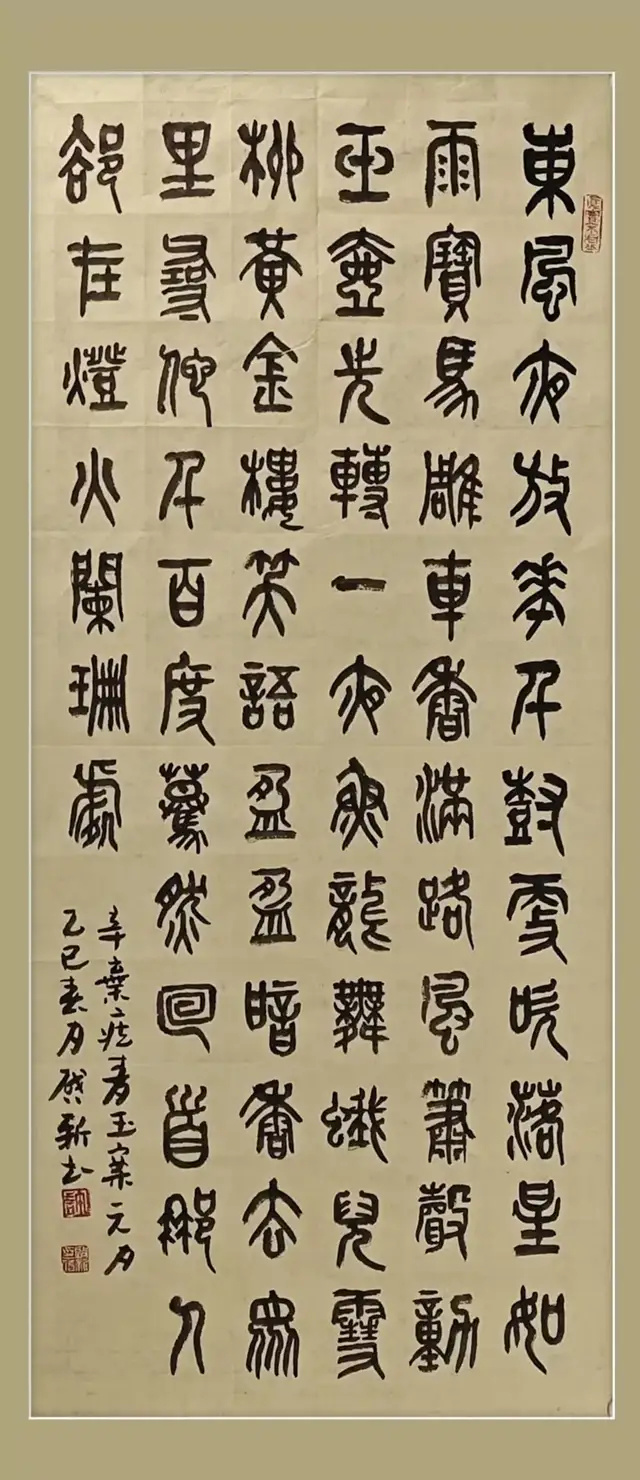 東風夜放花千樹更吹落星如
雨寶馬雕車香滿路風簫聲動
玉壺光轉一夜魚龍舞蛾兒雪
柳黃金樓笑語盈盈暗香去眾
里尋他千百度驀然回首那人
郤在燈火闌珊處
辛棄疾青玉案元夕
乙巳春月啟新书